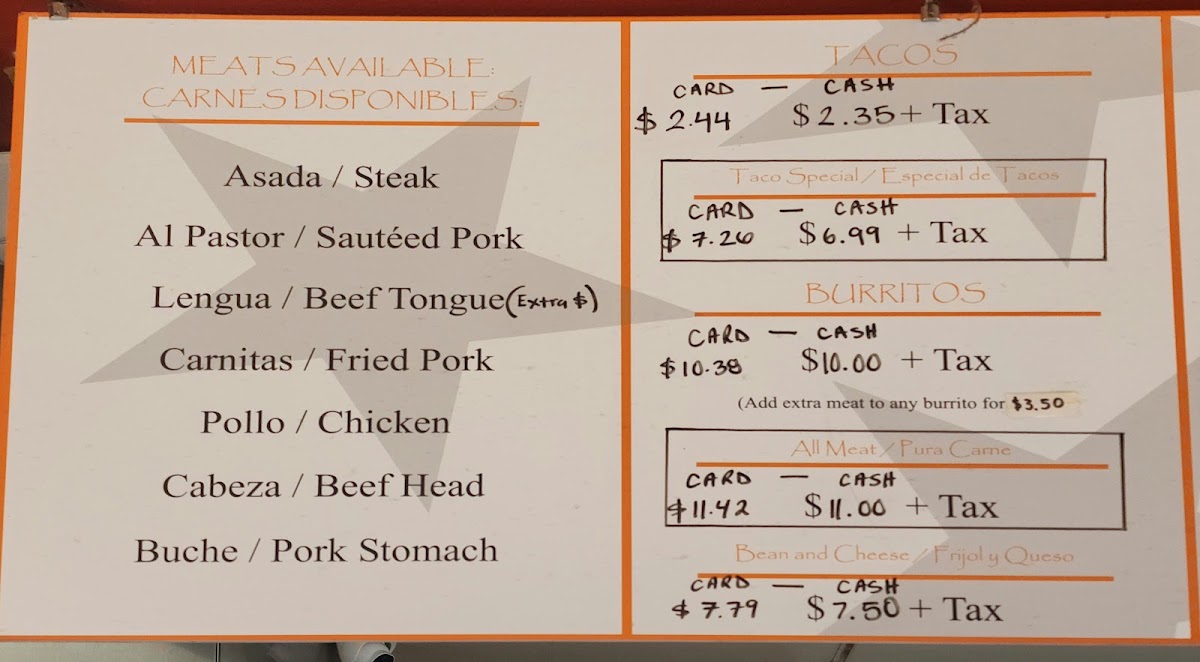 MEATS AVAILABLE:
CARNES DISPONIBLES:
Asada / Steak
Al Pastor / Sautéed Pork
Lengua / Beef Tongue (Extra $)
Carnitas / Fried Pork
Pollo / Chicken
Cabeza / Beef Head
Buche / Pork Stomach
TACOS
CARD — CASH
$ 2.44 $2.35 + Tax
Taco Special / Especial de Tacos
CARD — CASH
$ 7.26 $6.99 + Tax
BURRITOS
CARD — CASH
$10.38 $10.00 + Tax
(Add extra meat to any burrito for $3.50
All Meat / Pura Carne
CARD — CASH
$11.42 $11.00 + Tax
Bean and Cheese / Frijol y Queso
CARD — CASH
$ 7.79 $7.50 + Tax